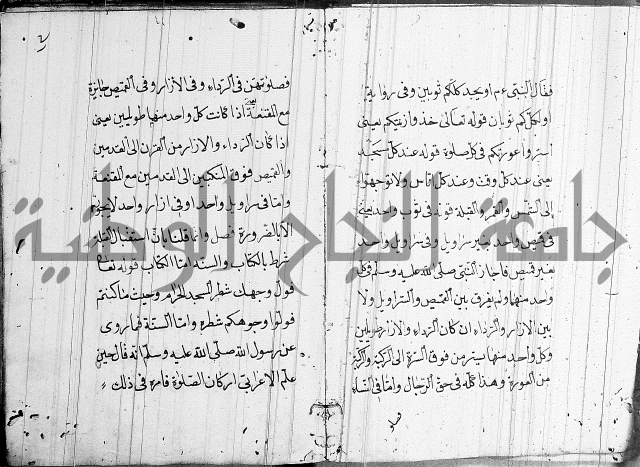 فقال النبي ءم اويجد كلكم ثوبين وفي رواية
اولكلكم ثوبان قوله تعالى خذوا زينتكم يعني
استروا عورتكم في كل صلوة قوله عند كل مسجد
يعني عند كل وقت وعند كل اناس ولا توجهوا
إلى الشمس والقمر والقبلة قوله في ثوب واحد يعني
في قميص واحد بغير سراويل وفي سراويل واحد
بغير قميص فاجاز النبي صلى الله عليه وسلم في كل
واحد منهما ولم يفرق بين القميص والسراويل ولا
بين الازار والرداء ان كان الرداء والازار طويلين
وكل واحد منهما يستر من فوق السرة الى الركبة والركبة
من العورة وهذا كله في حق الرجال واما في النساء
فصلو
فصلوتهن في الرداء وفي الازار وفي القميص جائزة
مع المقنعة اذا كانت كل واحد منهما طويلين يعني
اذا كان الرداء والازار من القرن الى القدمين
والقميص فوق المنكبين الى القدمين مع المقنعة
واما في سراويل واحد او في ازار واحد لا يجوز
الا بالضرورة فصل وانما قلنا بان استقبال القبلة
شرط بالكتاب والسنة اما الكتاب قوله تعالى
فول وجهك شطر المسجد الحرام وحيث ما كنتم
فولوا وجوهكم شطره واما السنة فما روى
عن رسول الله صلى الله عليه وسلم انه قال حين
علم الاعرابي اركان الصلوة فامره في ذلك
جامعة النجاح الوطنية